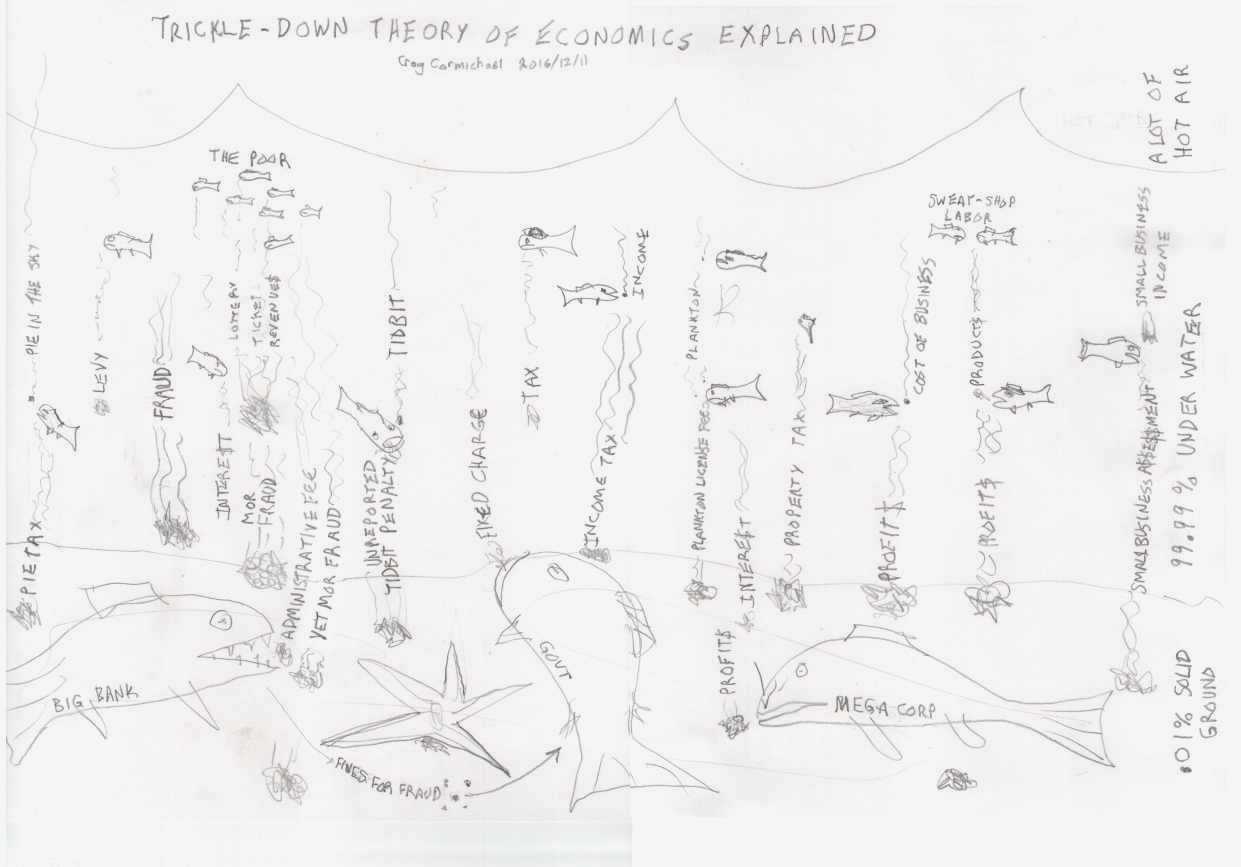 TRICKLE-DOWN THEORY OF ECONOMICS EXPLAINED
Craig Carmichael 2016/12/11
A LOT OF
HOT AIR
THE POOR
SWEAT-SHOP
LABOR
PIE IN THE SKY
LEVY
FRAUD
LOTTERY
TICKET
REVENUE$
TIDBIT
TAX
INCOME
PLANKTON
COST OF BUSINESS
PRODUCTS
SMALL BUSINESS
INCOME
PIE TAX
INTERE$T
MOR
FRAUD
ADMINISTRATIVE FEE
YET MOR FRAUD
UNREPORTED
TIDBIT PENALTY
FIXED CHARGE
INCOME TAX
PLANKTON LICENSE FEE
INTERE$T
PROPERTY TAX
PROFIT$
PROFIT$
SMALL BUSINESS A$$E$$MENT
99.99% UNDER WATER
BIG BANK
GOVT
PROFIT$
MEGA CORP
.01% SOLID
GROUND
FINES FOR FRAUD